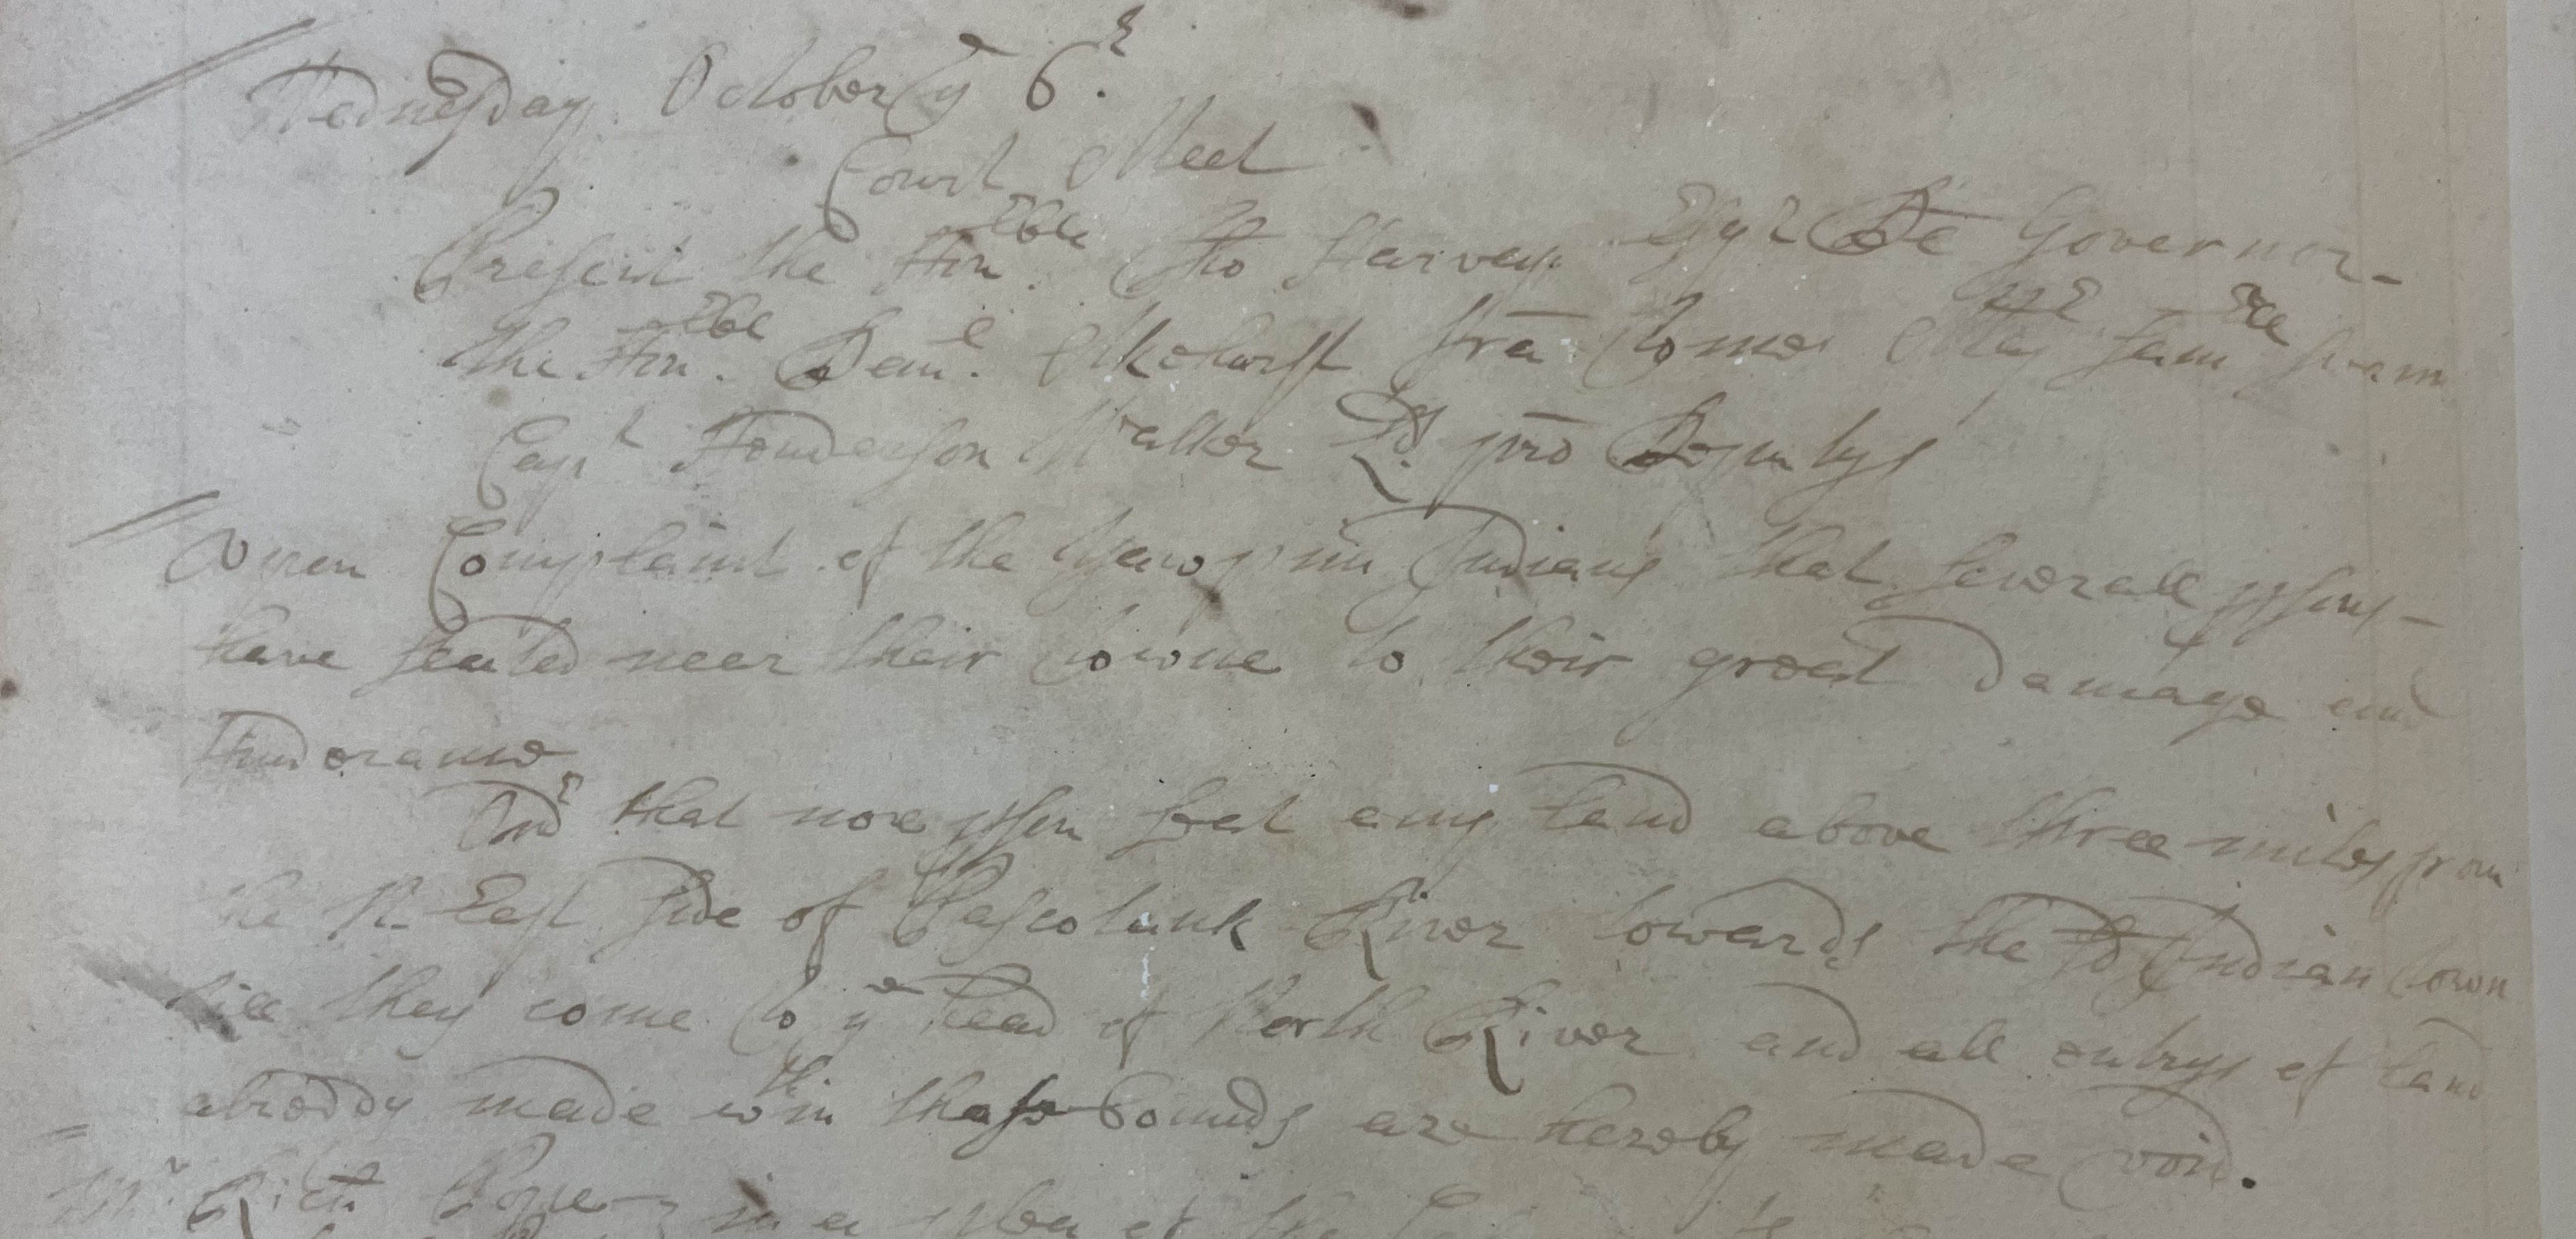 Wednesday October ye 6th
Court Meet
Present the Honble Tho Harvey Esqr De Governor
the Honble Danl Akehurst Fra Tomes Maj Sam Swann
Capt Henderson Waller Ld pro Deputys
Upon Complaint of the Yawpim Indians that severall psons
have seated neer their towne to their great damage and
hinderance
Ordr that noe pson seat any land above three miles from
the N. East side of Pascotank River towards the sd Indian town
till they come to ye head of North River and all entrys of land
alreddy made wthin those bounds are hereby made void.
Mr Rich Pope in a plea of the